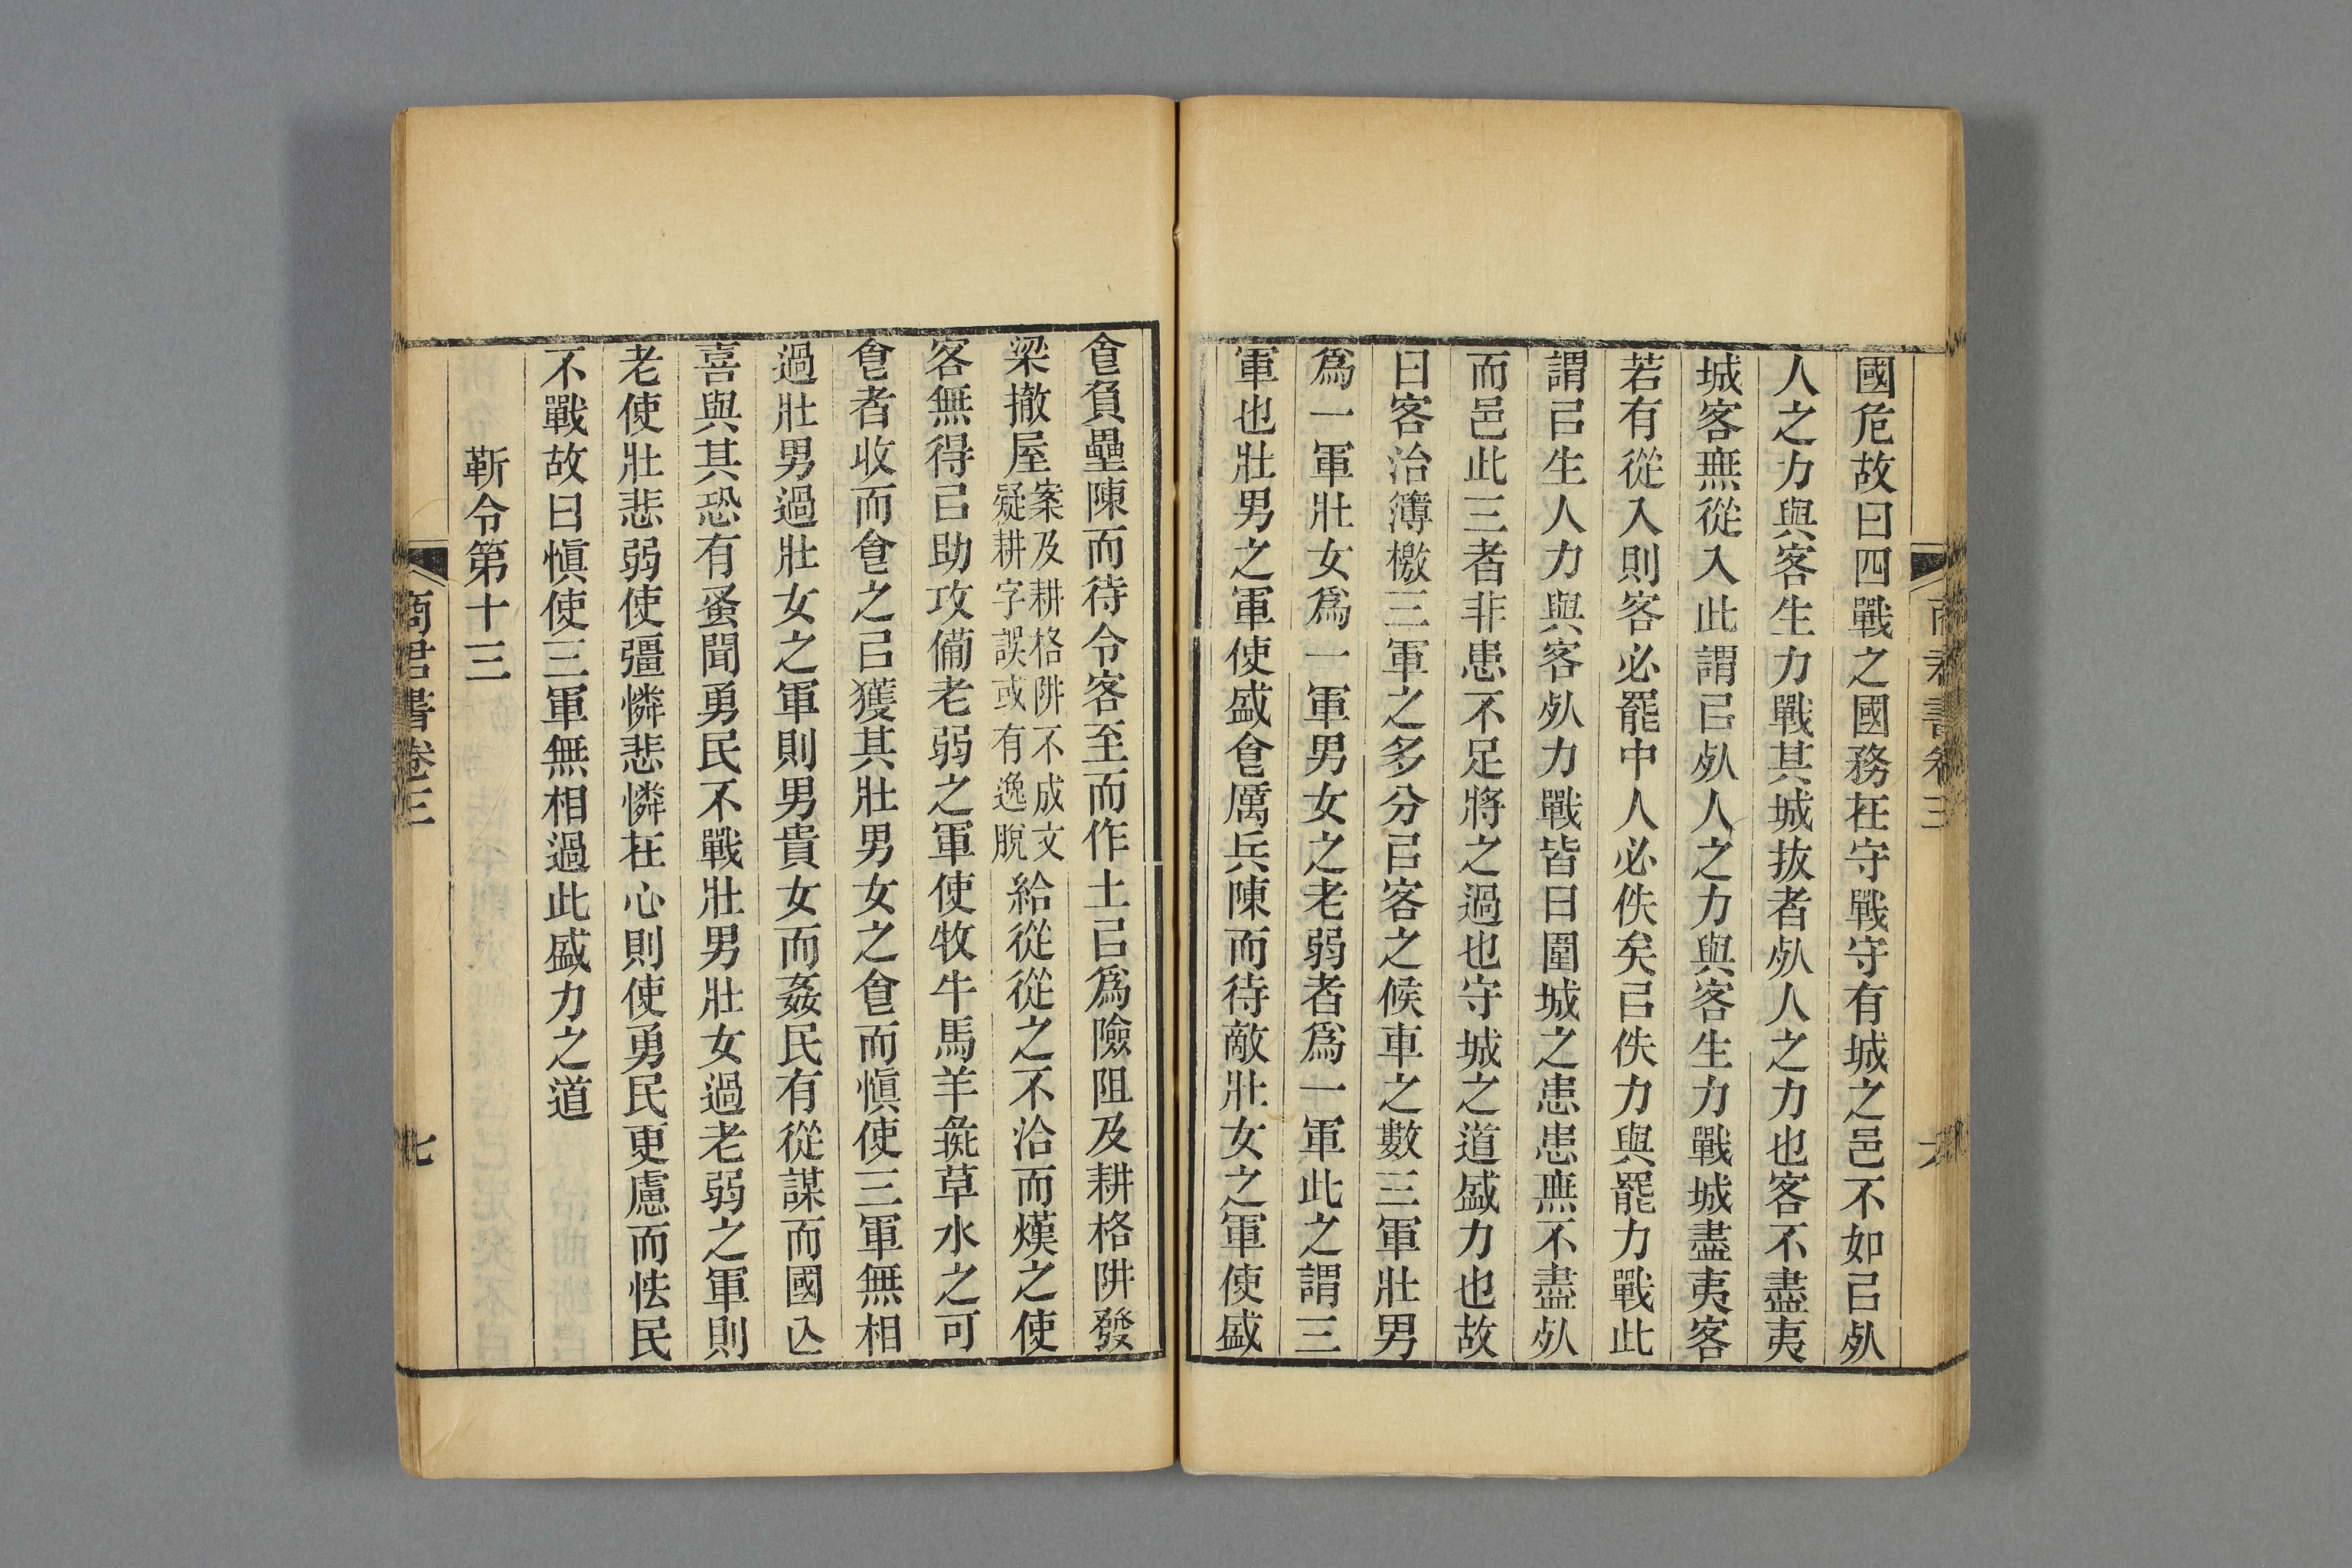 國危故曰四戰之國務在守戰守有城之邑不如㠯㱙
人之力與客生力戰其城拔者㱙人之力也客不盡夷
城客無從入此謂㠯㱙人之力與客生力戰城盡夷客
若有從入則客必罷中人必佚矣㠯佚力與罷力戰此
謂㠯生人力與客㱙力戰皆曰圍城之患患無不盡㱙
而邑此三者非患不足將之過也守城之道盛力也故
曰客治簿檄三軍之多分㠯客之候車之數三軍壯男
爲一軍壯女爲一軍男女之老弱者爲一軍此之謂三
軍也壯男之軍使盛食厲兵陳而待敵壯女之軍使盛
食負壘陳而待令客至而作土㠯爲險阻及耕格阱發
梁撤屋案及耕格阱不成文疑耕字誤或有逸脫給從從之不洽而熯之使
客無得㠯助攻備老弱之軍使牧牛馬羊彘草水之可
食者收而食之㠯獲其壯男女之食而愼使三軍無相
過壯男過壯女之軍則男貴女而姦民有從謀而國亾
喜與其恐有蚤聞勇民不戰壯男壯女過老弱之軍則
老使壯悲弱使彊憐悲憐在心則使勇民更慮而怯民
不戰故曰愼使三軍無相過此盛力之道
靳令第十三
商君書卷三
七